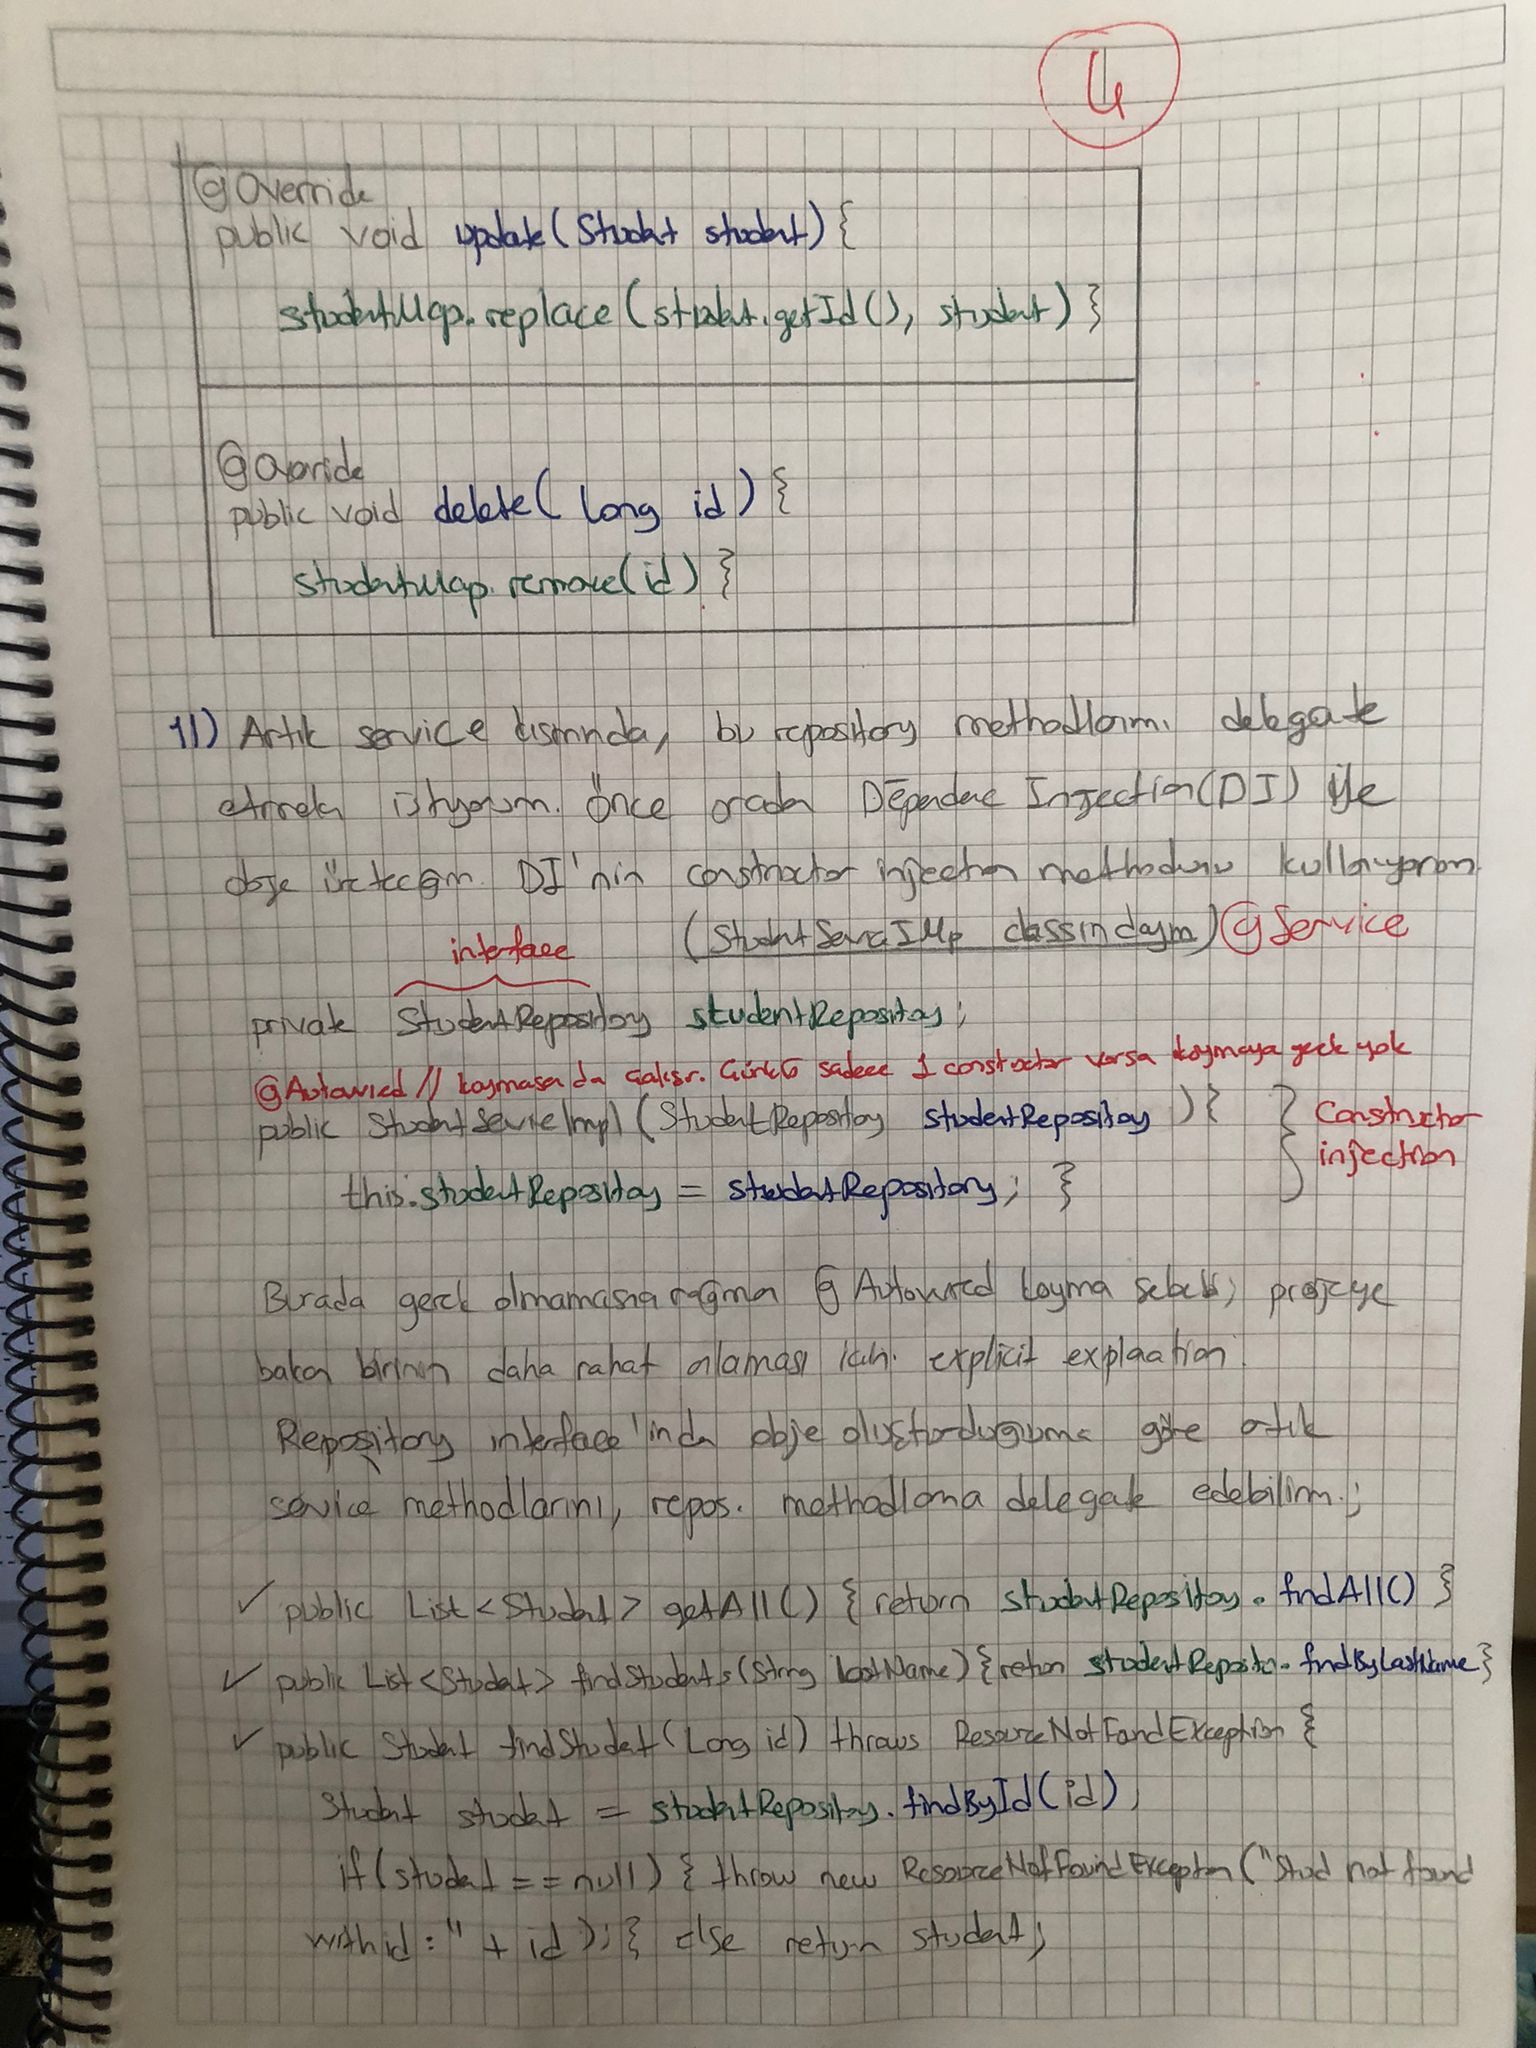 4
@Override
public void update(Student student){
studentMap.replace(student.getId(), student) }
@Override
public void delete( Long id) {
studentMap.remove(id) }
11) Artık service kısmında, bu repository methodlarını delegate
etmek istiyorum. Önce oradan Dependenc Injection(DI) ile
obje üretecğm. DI'nin constructor injection methodunu kullanıyorum.
(StudentServiceIMp classındayım) @Service
interface
private StudentRepository studentRepository;
@Autowired // koymasan da çalışır. Çünkü sadece 1 constructor varsa koymaya gerek yok
public StudentServiceImpl (StudentRepository studentRepository ) {
this.studentRepository = studentRepository; }
} Constructor injection
Burada gerek olmamasına rağmen @Autowired koyma sebebi; projeye
bakan birinin daha rahat anlaması için. explicit explanation.
Repository interface'inda obje oluşturduğuma göre artık
service methodlarını, repos. methodlarına delegate edebilirim.;
✓ public List<Student> getAll() { return studentRepository.findAll() }
✓ public List<Student> findStudents(String lastName) {return studentReposito.findByLastName}
✓ public Student findStudent(Long id) throws ResourceNotFoundException {
Student student = studentRepository.findById(id);
if(student == null) { throw new ResourceNotFoundException("Stud not found
with id : " + id ); } else return student;